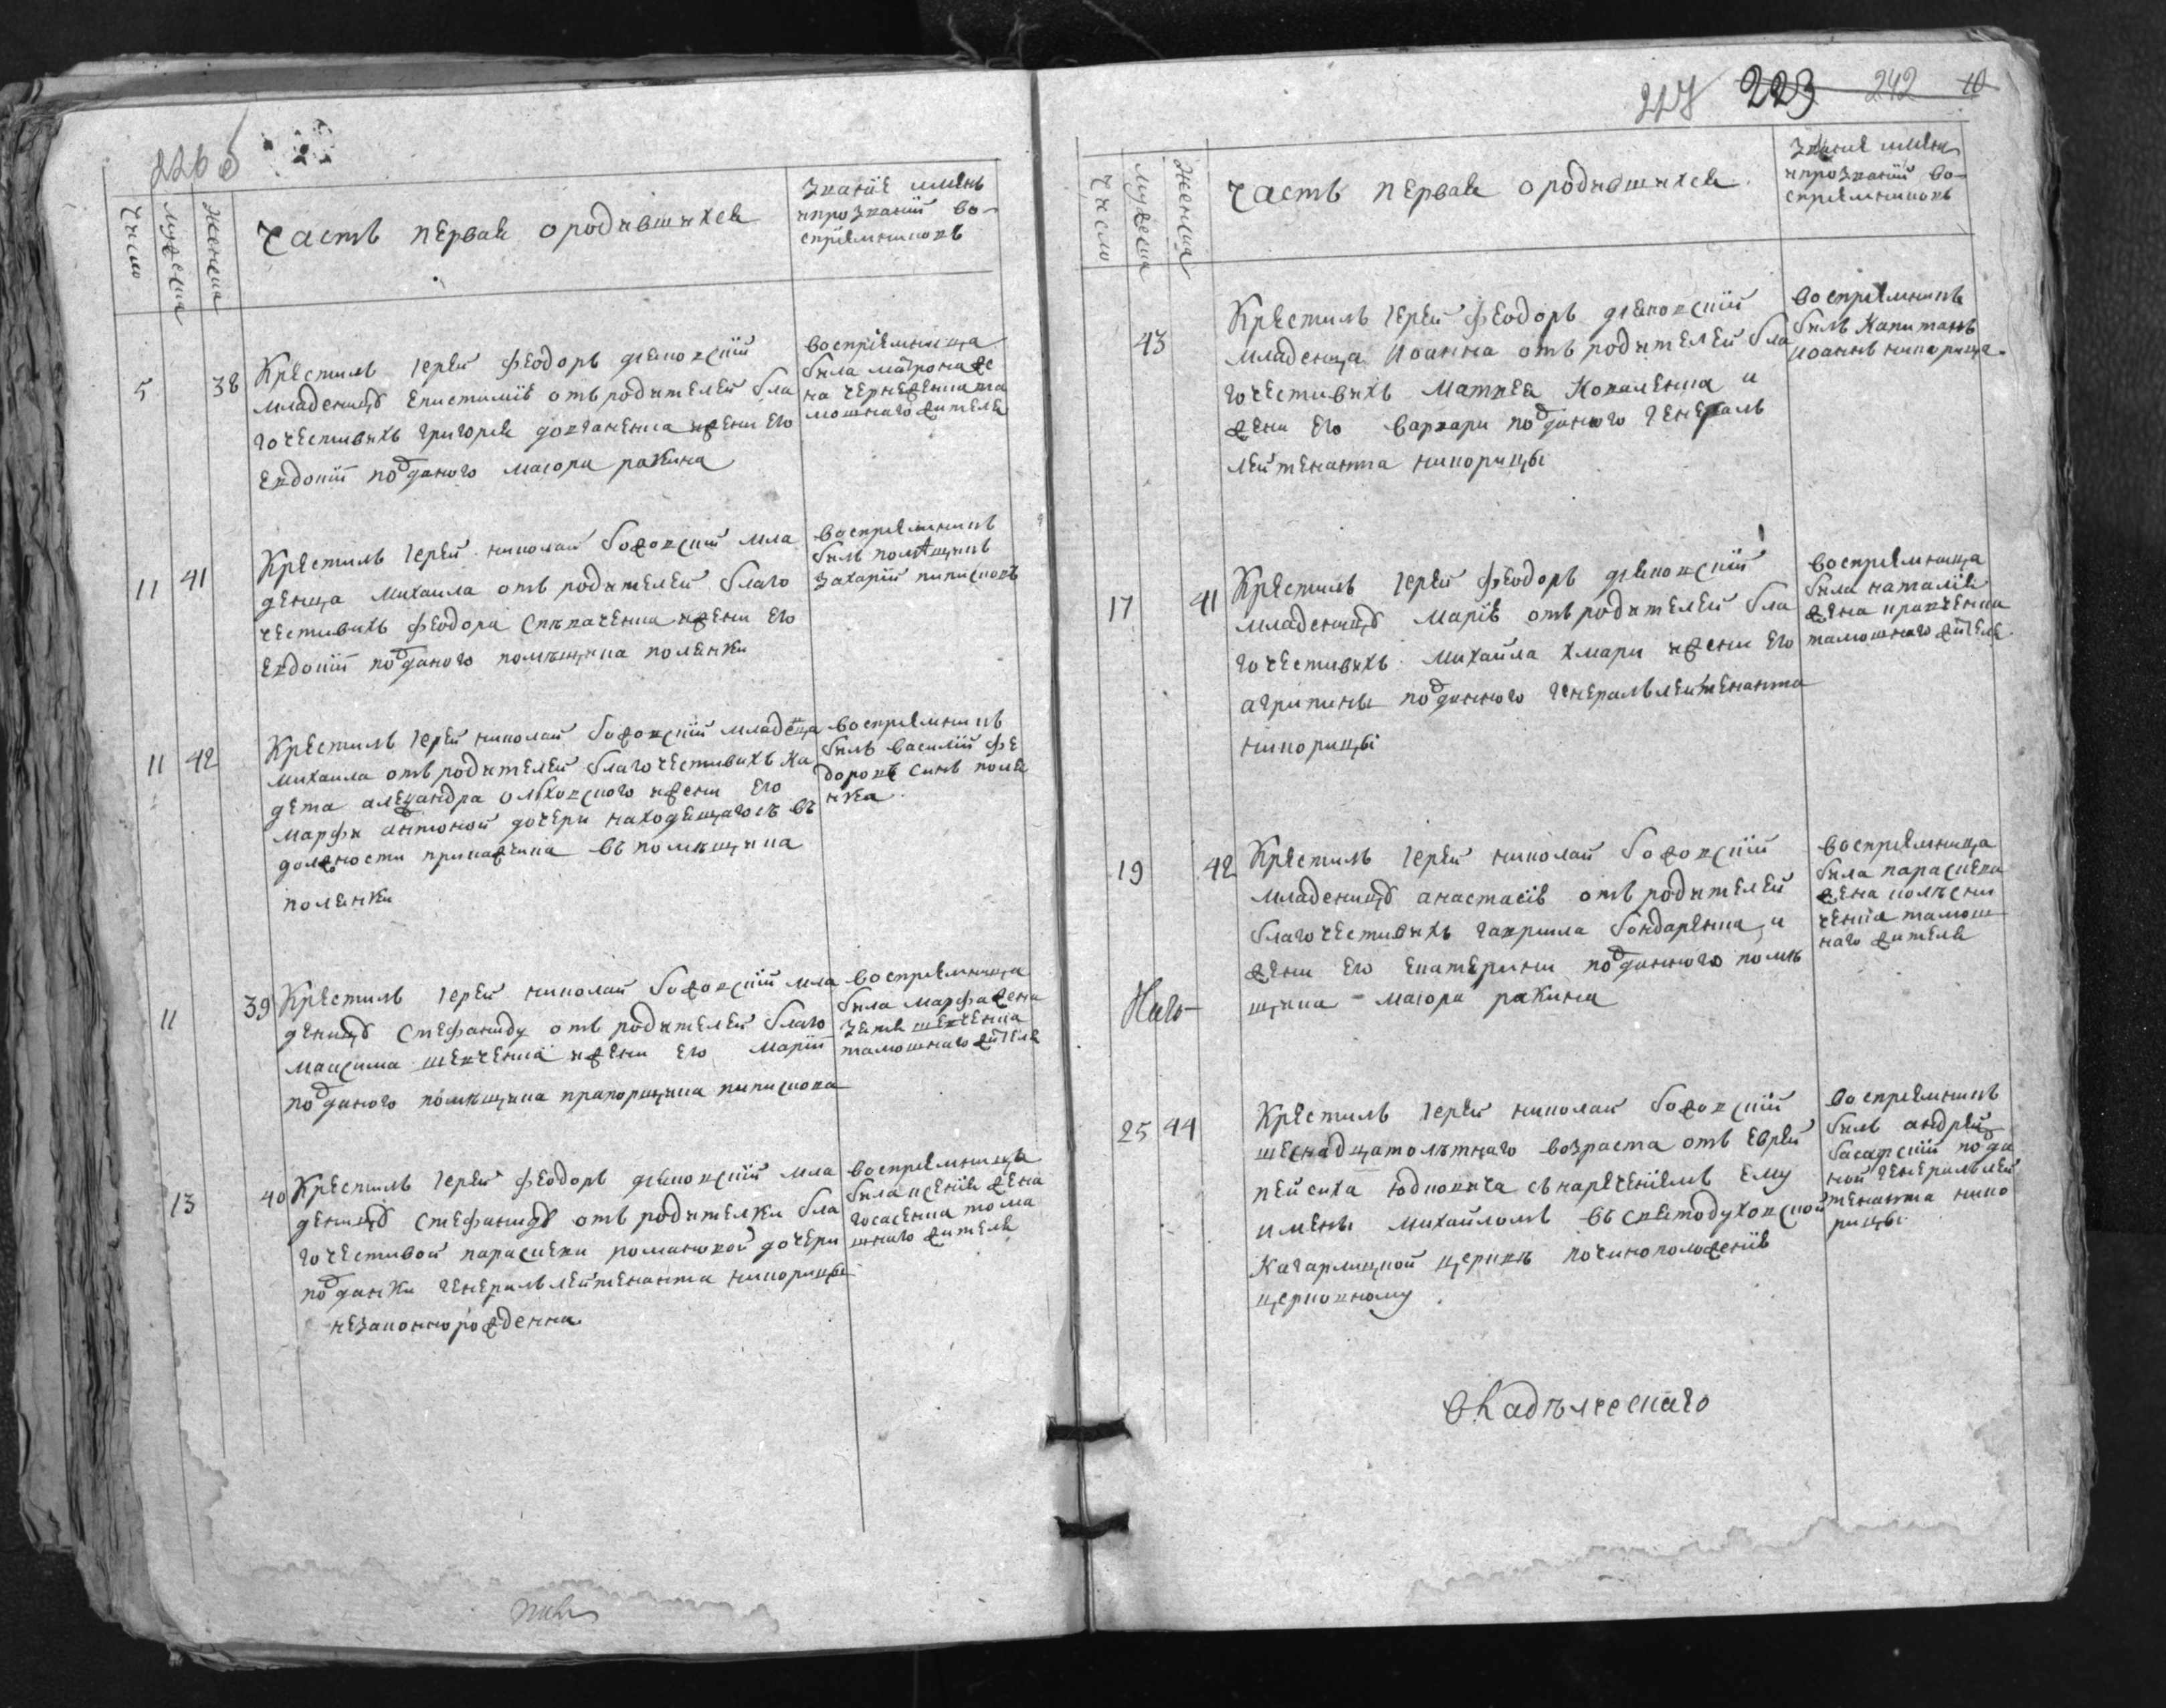 226 б
Число
Мужеска
Женска
Часть первая о родившихся
Званіе имянъ
и прозваній во-
спріемниковъ
5
38
Крестилъ іерей Феодоръ
младеницу Епистимію отъ родителей бла
гочестивихъ Григория Довганенка и жени его
Евдокіи подданого маіора Ракина
воспріемница
била Матрона же
на Чернеженка та
мошнаго жителя
11
41
Крестилъ іерей Николай Божовскій мла
денца Михаила отъ родителей благо
честивихъ Феодора и жени его
Евдокіи подданого помѣщика Полянки
воспріемникъ
билъ помѣщикъ
Захарій
11
42
Крестилъ іерей Николай Божовскій младенца
Михаила отъ родителей благочестивихъ ка
дета Александра Олховского и жени его
Марфи Антоной дочери находящагося въ
должности прикажчика въ помѣщика
Полянки
воспріемникъ
билъ Василій Фе
доровъ синъ Поля
нка
11
39
Крестилъ іерей Николай Божовскій мла
деницу Стефаниду отъ родителей благо
Максима Шевченка и жени его Маріи
подданого помѣщика прапорщика
воспріемница
била Марфа жена
Шевченка
тамошнаго жителя
13
40
Крестилъ іерей Феодоръ мла
деницу Стефаниду отъ родителки бла
гочестивой Параскеви Романовой дочери
подданки генералъ лейтенанта Никорици
незаконнорожденна
воспріемница
била Ксенія жена
тома
шнаго жителя
227 223 242 10
Число
Мужеска
Женска
Часть первая о родившихся
Званіе имянъ
и прозваній во-
спріемниковъ
43
Крестилъ іерей Феодоръ
младенца Иоанна отъ родителей бла
гочестивихъ Матвея Коваленка и
жени его Варвари подданого генералъ
лейтенанта Никорици
воспріемникъ
билъ капитанъ
Иоаннъ Никорица
17
41
Крестилъ іерей Феодоръ
младеницу Марію отъ родителей бла
гочестивихъ Михайла Хмари и жени его
Агрипины подданного генералълейтенанта
Никорици
воспріемница
била Наталія
жена Кравченка
тамошнаго жителя
19
42
Крестилъ іерей Николай Божовскій
младеницу Анастасію отъ родителей
благочестивихъ Гаврила Бондаренка и
жени его Екатерини подданного помѣ
щика маіора Ракина
воспріемница
била Параскева
жена
тамош
наго жителя
25
44
Крестилъ іерей Николай Божовскій
шеснадцатолѣтнаго возраста отъ еврей
съ нареченіемъ ему
имены Михайломъ въ Святодуховской
Кагарлицкой церквѣ по чиноположенію
церковному
воспріемникъ
билъ Андрей
подда
ной генералълей
тенанта Нико
рици